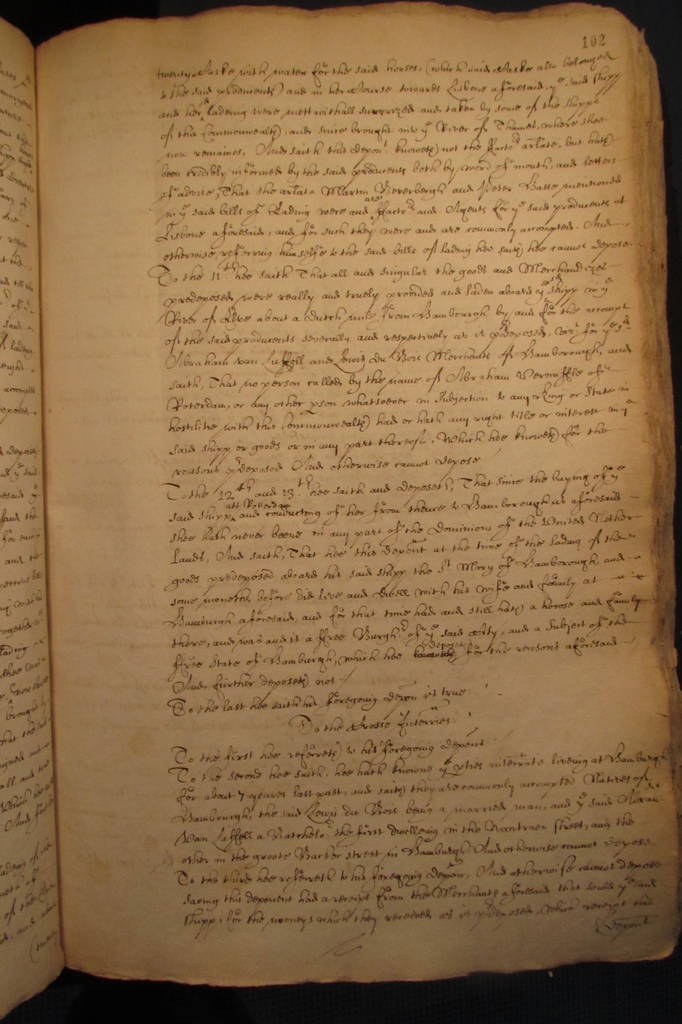 102
twenty Caske with water for the said horses, (which said Caske also belonged
to the said producents) and in her Course towards Lisbone aforesaid, ye said shipp
and her lading were mett withall surprized and taken by some of the shipps
of this Commonwealth, and since brought into ye River of Thames, where shee
now remaines. And saith this depont knoweth not the factors arlate, but hath
been credibly informed by the said producents both by word of mouth, and letters
of advise, That the arlate Martin and Peter Basse mentioned
in ye said bills of lading were and are Factors and Agents for ye said producents at
Lisbone aforesaid, and for such they were and are commonly accompted. And
otherwise referring himselfe to the said bills of lading hee saith hee cannot depose
To the 11th hee saith That all and singular the goods and Merchandizes
predeposed were really and truely provided and laden aboard ye shipp in ye
River of Elve about a dutch mile from Hamburgh by and for the accompt
of the said producents severally and respectively as is predeposed, viz for ye sd
Abraham van and Lewis du Bois Merchants of Hamborough, and
saith, That no person called by the name of Abraham of
Roterdam, or any other pson whatsoever in Subjection to any King or State in
hostilitie with this Commonwealth had or hath any right title or interest in ye
said shipp or goods or in any part thereof. Which hee knoweth for the
reasons predeposed And otherwise cannot depose
To the 12th and 13th hee saith and deposeth, That since the buying of ye
said shipp att Roterdam and conducting of her from thence to Hamborough as aforesaid
shee hath never beene in any part of the Dominions of the United Nether
lands, And saith, That hee this depont at the time of the lading of the
goods predeposed aboard his said shipp the St Mary of Hamborough and
some moneths before did live and dwell with his wife and family at
Hamburgh aforesaid, and for that time had and still hath a house and family
there, and was and is a free Burghr of ye said City, and a Subject of the
free State of Hamburgh, which hee deposeth for the reasons aforesaid
And further deposeth not
To the last hee saith his foregoing depon is true
To the Crosse Interries
To the first hee referreth to his foregoing deposit
To the second hee saith, hee hath knowne ye ptes interrate liveing at Hamburgh
for about 7 yeares last past, and saith they are commonly accompted Natives of
Hamburgh, the said Lewis du Bois being a married man, and ye said Abraham
Van a Batchelor the first dwelling in the street, and the
other in the groote street in Hamburgh And otherwise cannot depose
To the third hee referreth to his foregoing depon, And otherwise cannot depose
saving this deponent had a receipt from the Merchants aforesaid that sould ye said
shipp, for the moneys which they received as is predeposed, which receipt this
(depont